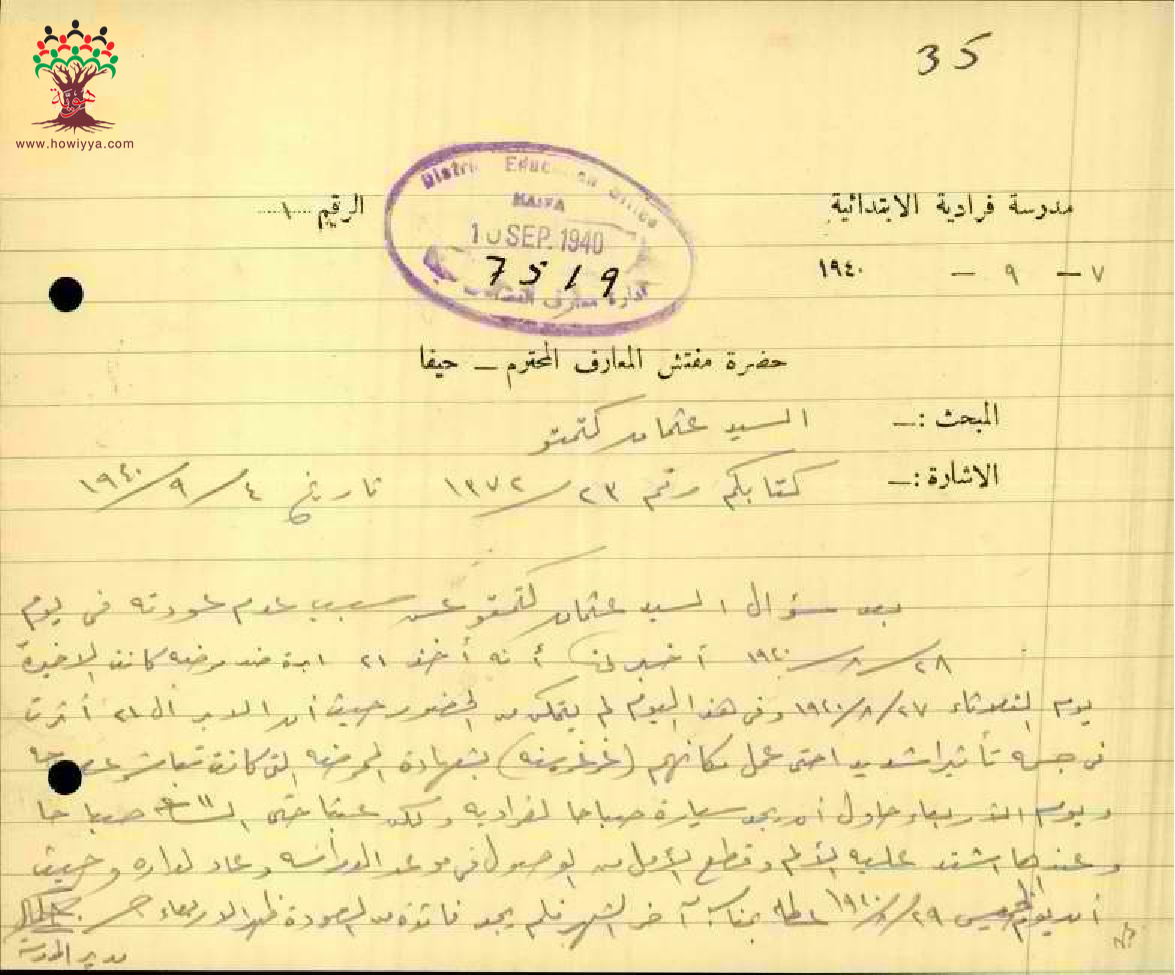 35
هوية
www.howiyya.com
District Education Office
HAIFA
10 SEP. 1940
7519
مدرسة فرادية الابتدائية
الرقيم ١
٧ - ٩ - ١٩٤٠
حضرة مفتش المعارف المحترم - حيفا
المبحث :- السيد عثمان كتمتو
الاشارة :- كتابكم رقم ٢٣/١٣٧٢ تاريخ ٤/٩/١٩٤٠
بعد سؤال السيد عثمان كتمتو عن سبب عدم عودته في يوم
٢٨/٨/١٩٤٠ أنه أخذ ٢١ ابرة ضد مرضه كانت الاخيرة
يوم الثلاثاء ٢٧/٨/١٩٤٠ وفي هذا اليوم لم يتمكن من الحضور حيث أن الابر ال ٢١ أثرت
في جسمه تأثيرا شديدا حتى عمل مكانهم (غرغرينه) بشهادة الممرضه التي كانت
ويوم الاربعاء حاول أن يجد سيارة صباحا لفراديه ولكن عبثا حتى الساعة ١١ صباحا
وعندها اشتد عليه الألم وقطع الأمل من الوصول في موعد الدراسه وعاد لداره وحيث
أن يوم الخميس ٢٩/٨/١٩٤٠ عطلة آخر الشهر فلم يجد فائدة من العودة ظهر الاربعاء
مدير المدرسة